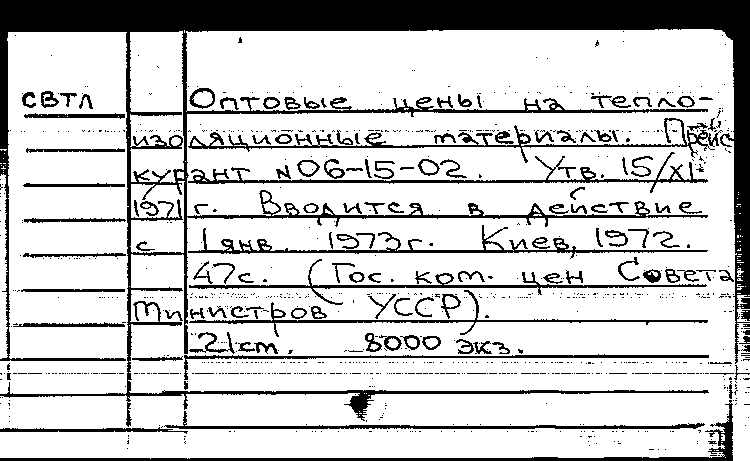 СВТЛ Оптовые цены на тепло-
изоляционные материалы. Прейс
курант №06-15-02. Утв. 15/XI-
1971 г. Вводится в действие
с 1 янв. 1973г. Киев, 1972.
47с. (Гос. ком. цен Совета
Министров УССР).
21cm. 8000 экз.